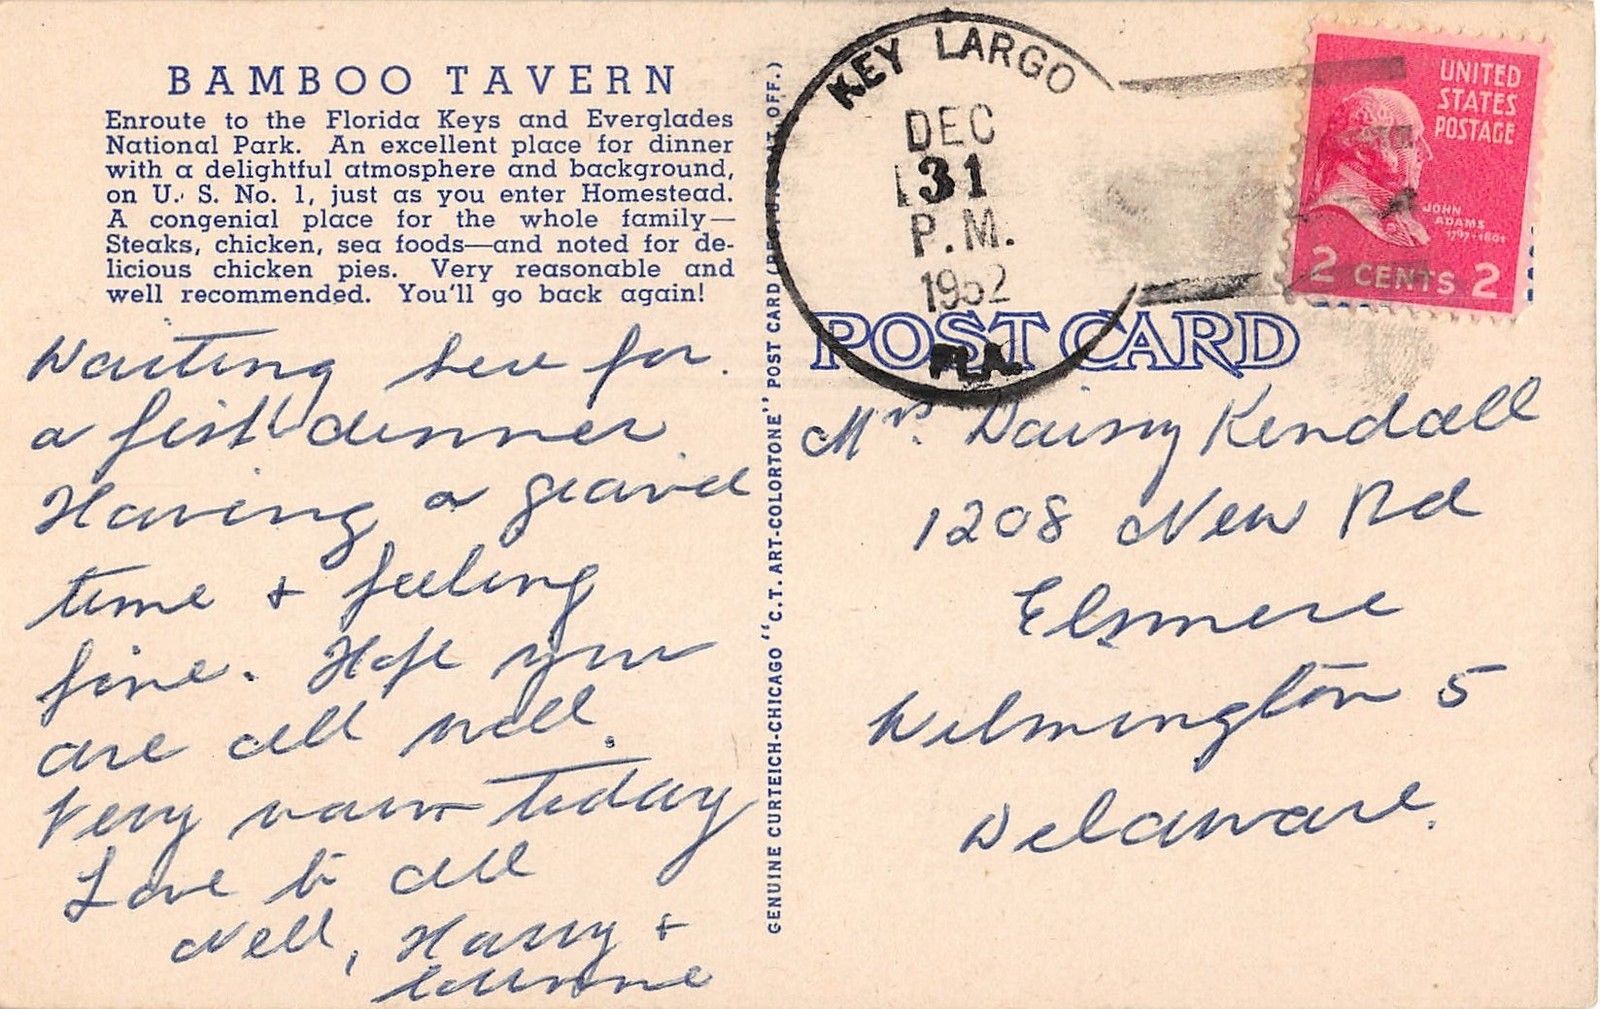 BAMBOO TAVERN
Enroute to the Florida Keys and Everglades
National Park. An excellent place for dinner
with a delightful atmosphere and background,
on U. S. No. 1, just as you enter Homestead.
A congenial place for the whole family—
Steaks, chicken, sea foods—and noted for de-
licious chicken pies. Very reasonable and
well recommended. You'll go back again!
Waiting here for
a fish dinner
Having a grand
time + feeling
fine. Hope you
are all well.
Very warm today
Love to all
Nell, Harry +
GENUINE CURTEICH-CHICAGO "C.T. ART-COLORTONE" POST CARD (REG. U.S. PAT. OFF.)
KEY LARGO
DEC
31
P.M.
1952
FLA.
UNITED
STATES
POSTAGE
JOHN
ADAMS
1797-1801
2 CENTS 2
POST CARD
Mrs. Daisy Kendall
1208 New Rd
Elsmere
Wilmington 5
Delaware.